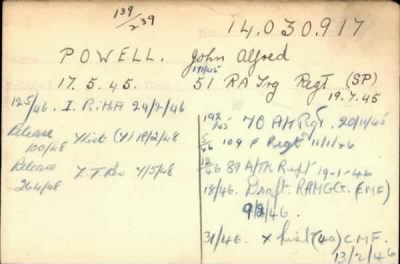 139/239
14.030.917
POWELL. John Alfred
17. 5. 45.
181/45 51 RA Trg Regt (SP)
19.7.45
125/46. I. R.H.A 24/2/46
192/45 70 A/T Rgt. 20/11/45
5/46 109 F Regt 11/1/46
Release 100/48 Y list (Y) 18/2/48
12/46 89 A/Tk Regt 19-1-46
Release 264/48 Z. T Res 4/5/48
18/46. Draft. RAHGCT. (CMF)
9/2/46.
31/46. X list (4a) C.M.F.
13/2/46